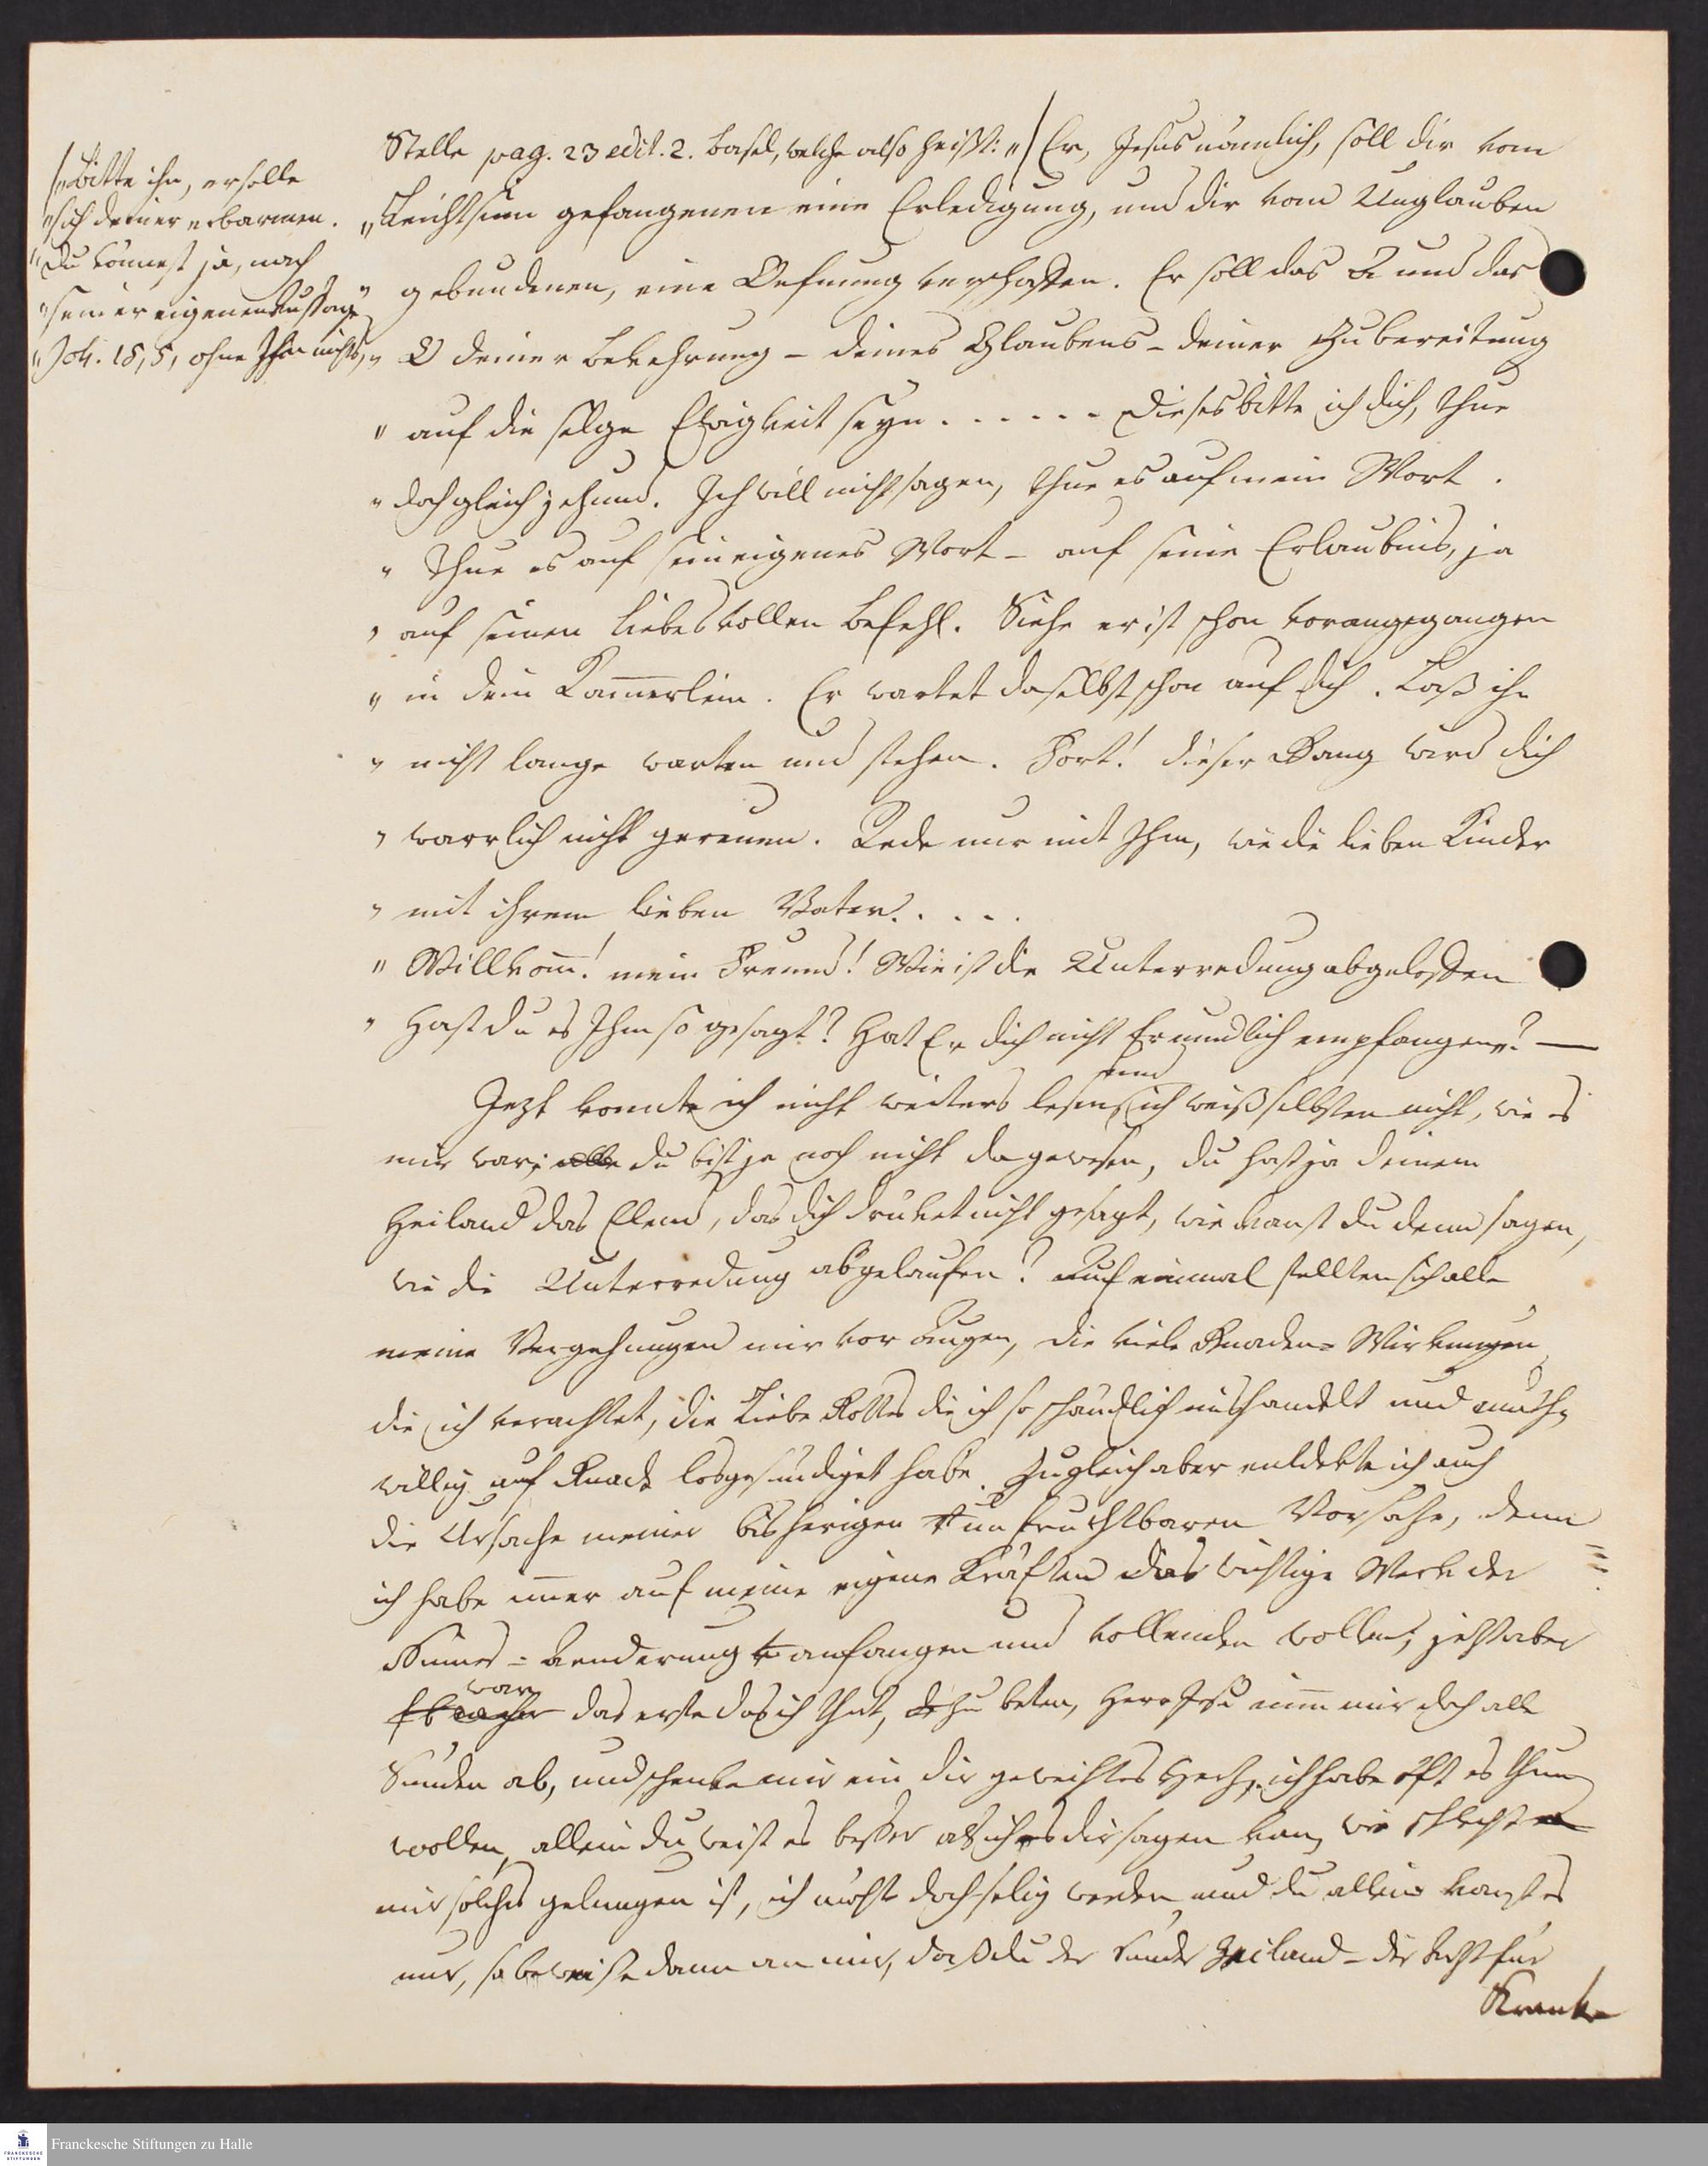 Stelle pag. 23 edit. 2. Basel, welche also heißt: „ / Er, Jesus nämlich, soll dir vom
„ Leichtsinn gefangenen eine Erledigung, und dir vom Unglauben
„ gebundenen, eine Oefnung verschaffen. Er soll das A und das
„ O deiner Bekehrung – deines Glaubens – deiner Zubereitung
„ auf die selge Ewigkeit seyn. . . . . . Dieses bitte ich dich, thue
„ doch gleich jezund. Ich will nicht sagen, thue es auf mein Wort.
„ Thue es auf sein eigenes Wort – auf seine Erlaubnis, ja
„ auf seinen liebesvollen Befehl. Siehe er ist schon vorangegangen
„ in dein Kammerlein. Er wartet daselbst schon auf dich. Laß ihn
„ nicht lange warten und stehen. Fort! dieser Gang wird dich
„ warrlich nicht gereuen. Rede nur mit Ihm, wie die lieben Kinder
„ mit ihrem lieben Vater. . . . .
„ Willkom̄! mein Freund! Wie ist die Unterredung abgeloffen
„ Hast du es Ihm so gesagt? Hat Er dich nicht freundlich empfangen? —
/ „ bitte ihn, er solle
„ sich deiner erbarmen.
„ Du könnest ja, nach
„ seiner eigenen Aussage
„ Joh. 15, 5, ohne Ihn nichts, „
Jezt konnte ich nicht weiters lesen, und ich weiß selbsten nicht, wie es
mir war; du bist ja noch nicht da gewesen, du hast ja deinem
Heiland das Elend, das dich druket nicht gesagt, wie kanst du denn sagen,
wie die Unterredung abgelaufen? Auf einmal stellten sich alle
meine Vergehungen mir vor Augen, die viele Gnaden-Wirkungen,
die ich verachtet, die Liebe Gottes die ich so schändlich mishandelt und muth-
willig auf Gnade losgesündiget habe. Zugleich aber entdekte ich auch
die Ursache meiner bisherigen unfruchtbaren Vorsäze, denn
ich habe im̄er auf meine eigene Kräften das wichtige Werk der
Sinnes-Aenderung anfangen und vollenden wollen; jezt aber
war das erste das ich that, zu beten, Herr Jesu nim̄ mir doch alle
Sünden ab, und schenke mir ein dir geweihtes Herz, ich habe oft es thun
wollen, allein du weist es besser als ich es dir sagen kan, wie schlecht
mir solches gelungen ist, ich möchte doch selig werden, und du allein kanst es
nur, so beweise dann an mir, daß du der Sünder Heiland – der Arzt für
Kranke
Franckesche Stiftungen zu Halle
FRANCKESCHE
STIFTUNGEN